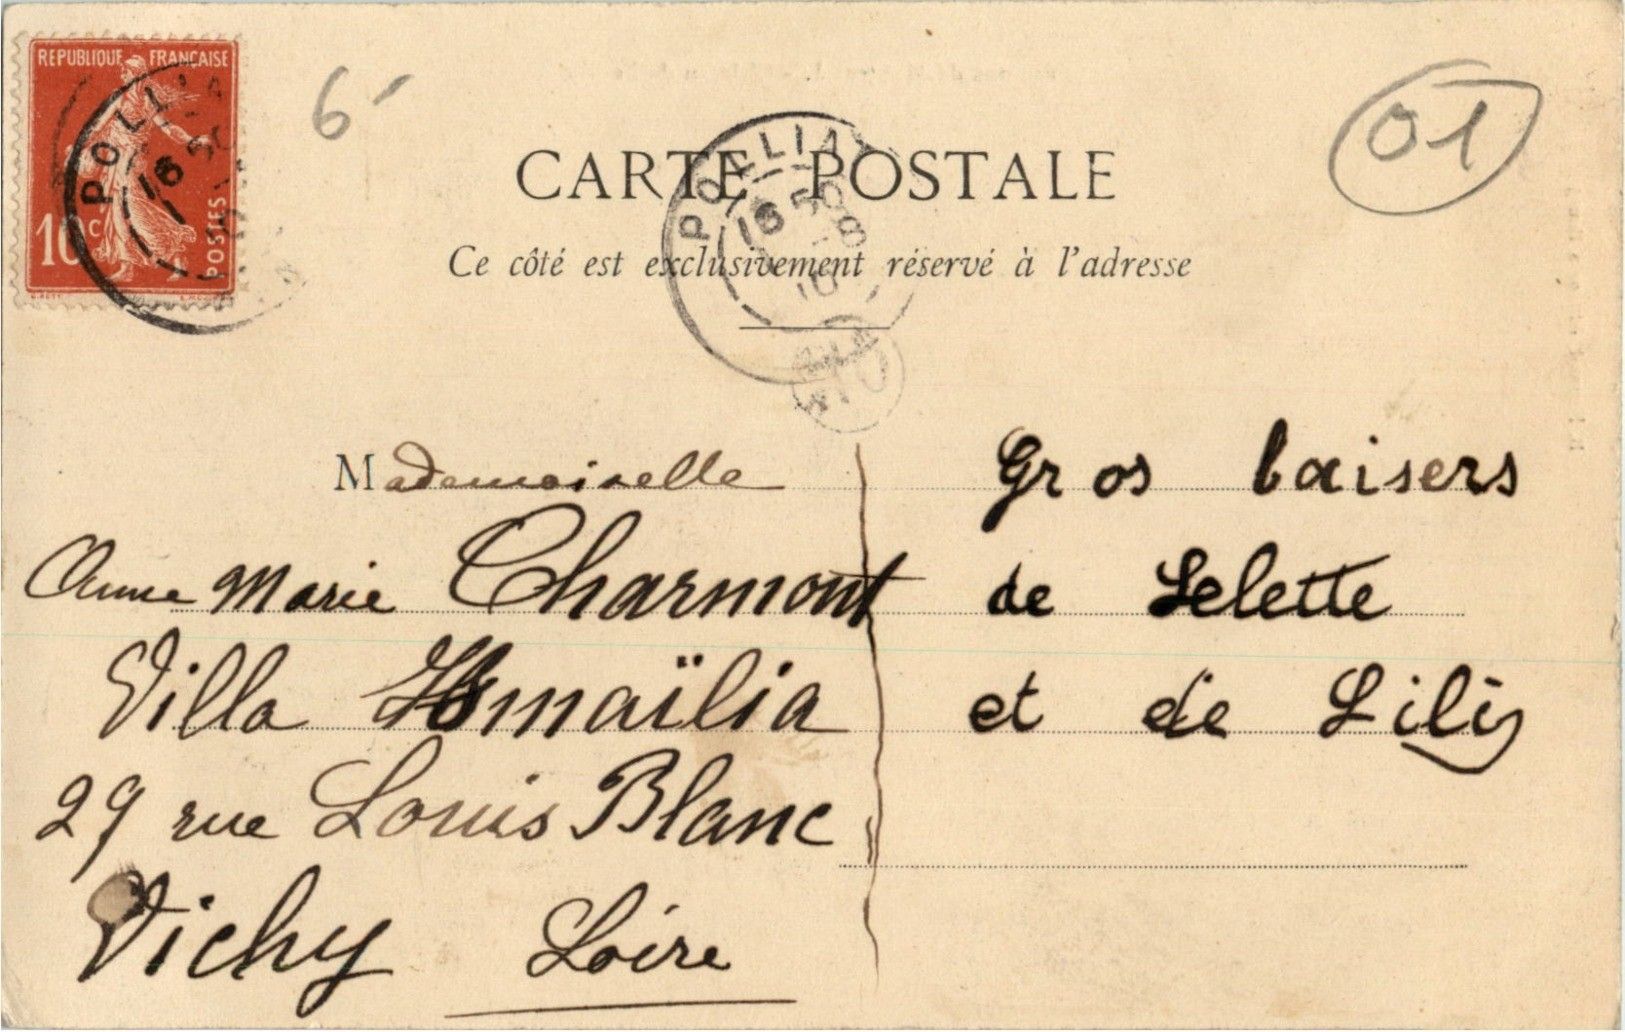 REPUBLIQUE FRANÇAISE
10c
POSTES
6
01
CARTE POSTALE
Ce côté est exclusivement réservé à l'adresse
POLLIAT
16 50
8
10
Mademoiselle
Anne Marie Charmont
Villa Ismaïlia
29 rue Louis Blanc
Vichy Loire
Gros baisers
de Lelette
et de Lili